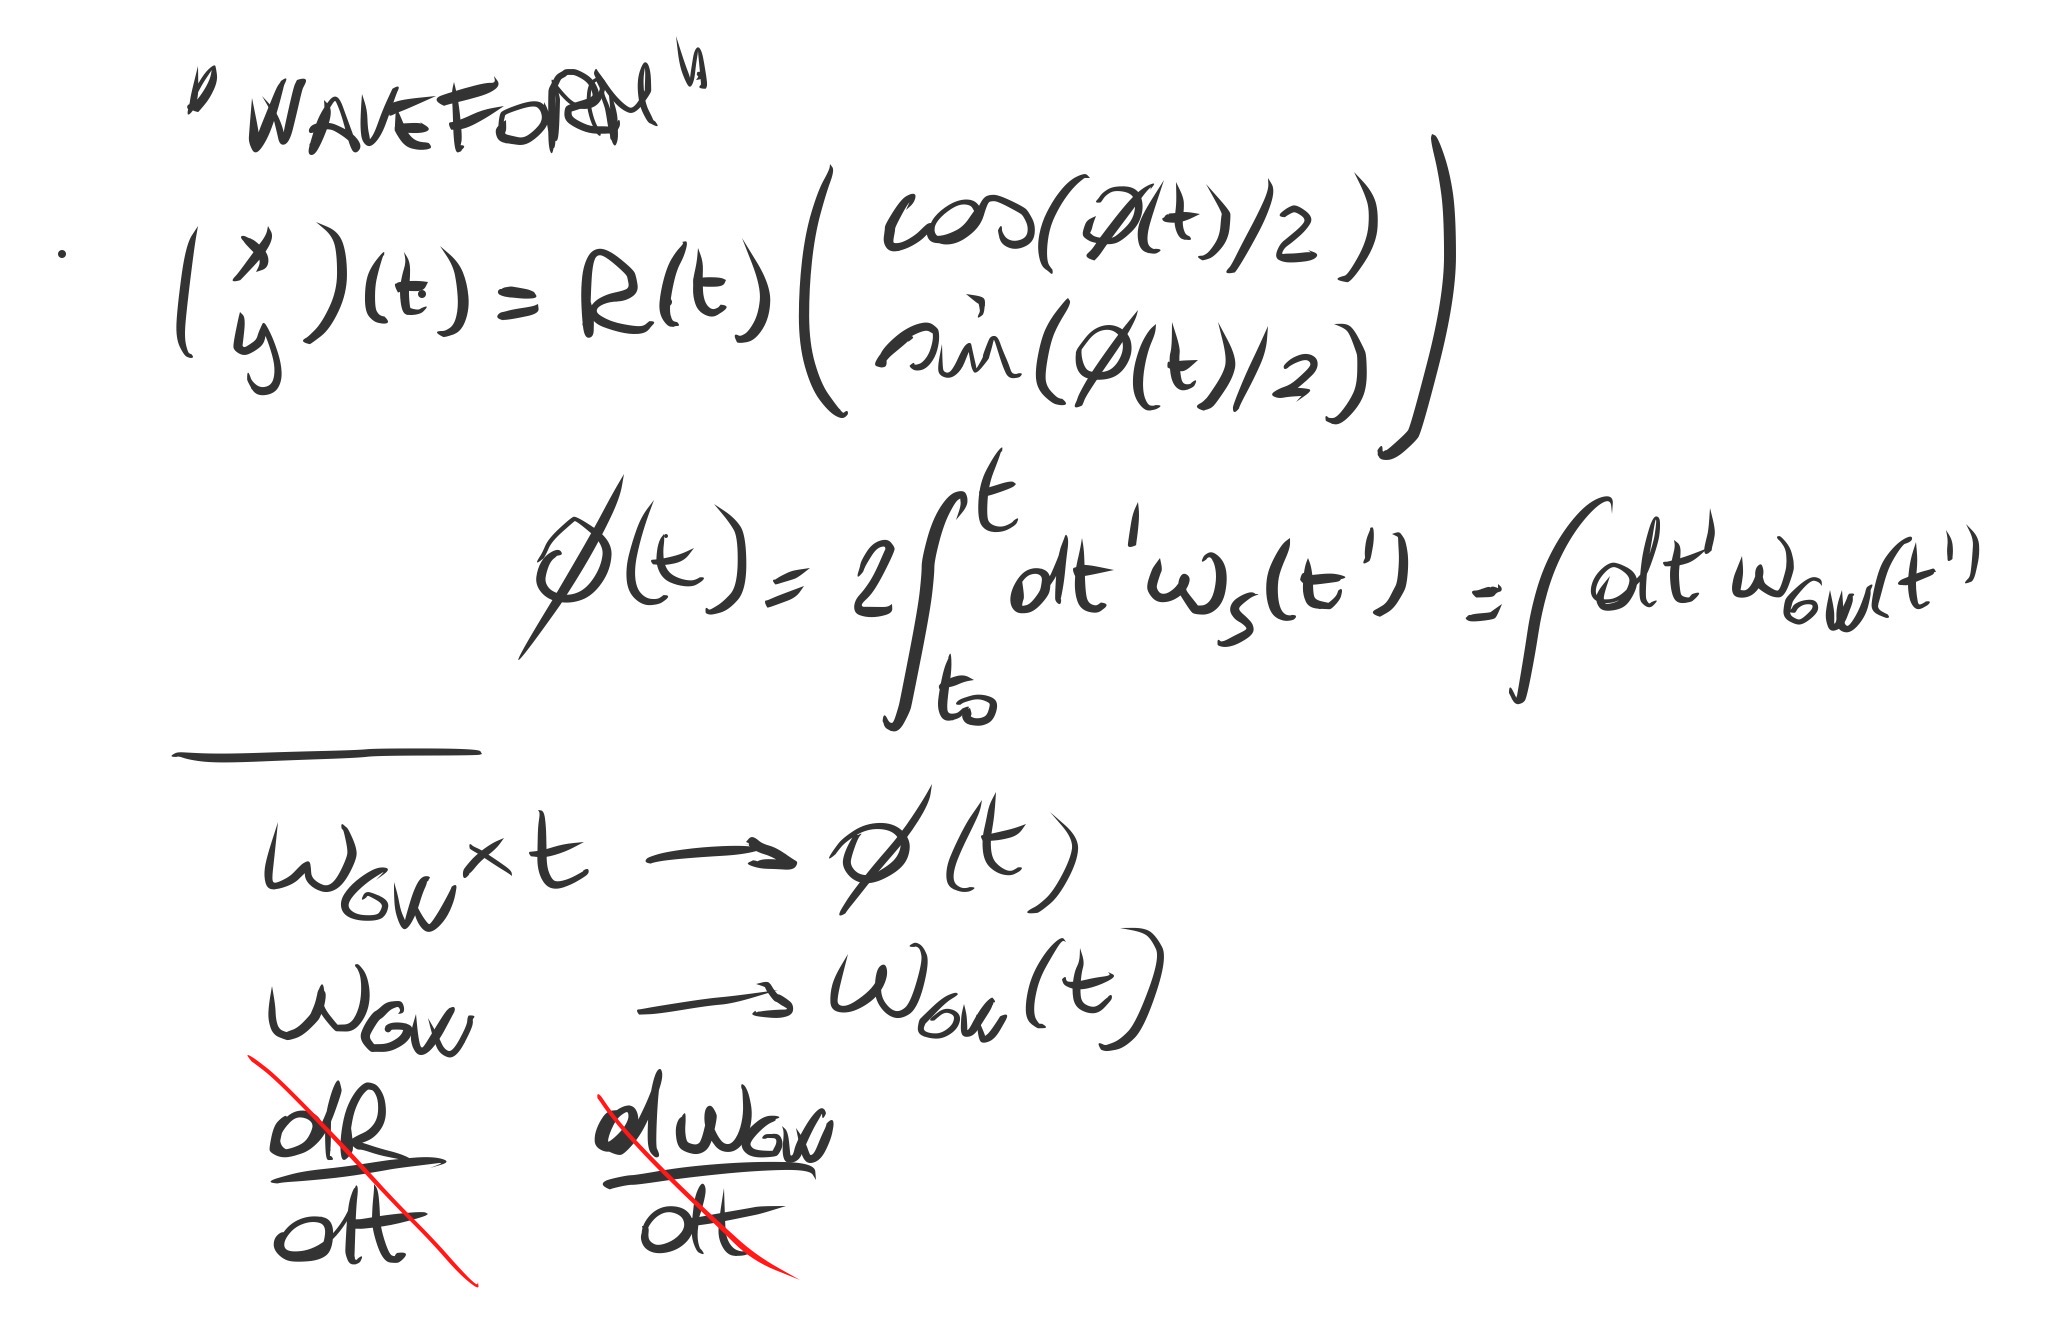 "WAVEFORM"
(x y)(t) = R(t) (cos(φ(t)/2) sin(φ(t)/2))
φ(t) = 2∫_{t₀}^{t} dt' ω_s(t') = ∫ dt' ω_GW(t')
ω_GW × t → φ(t)
ω_GW → ω_GW(t)
dR/dt dω_GW/dt